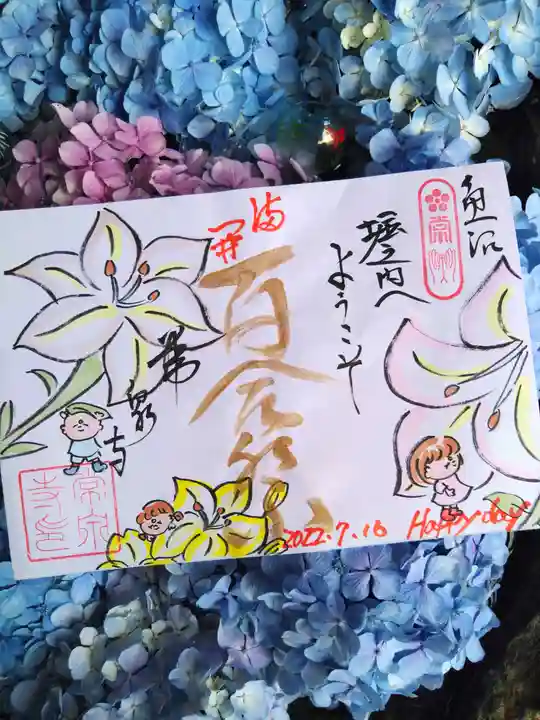 魚沼
堀之内へ
ようこそ
満
開
百合
常
泉
寺
常泉
寺印
2022.7.16 Happy day!